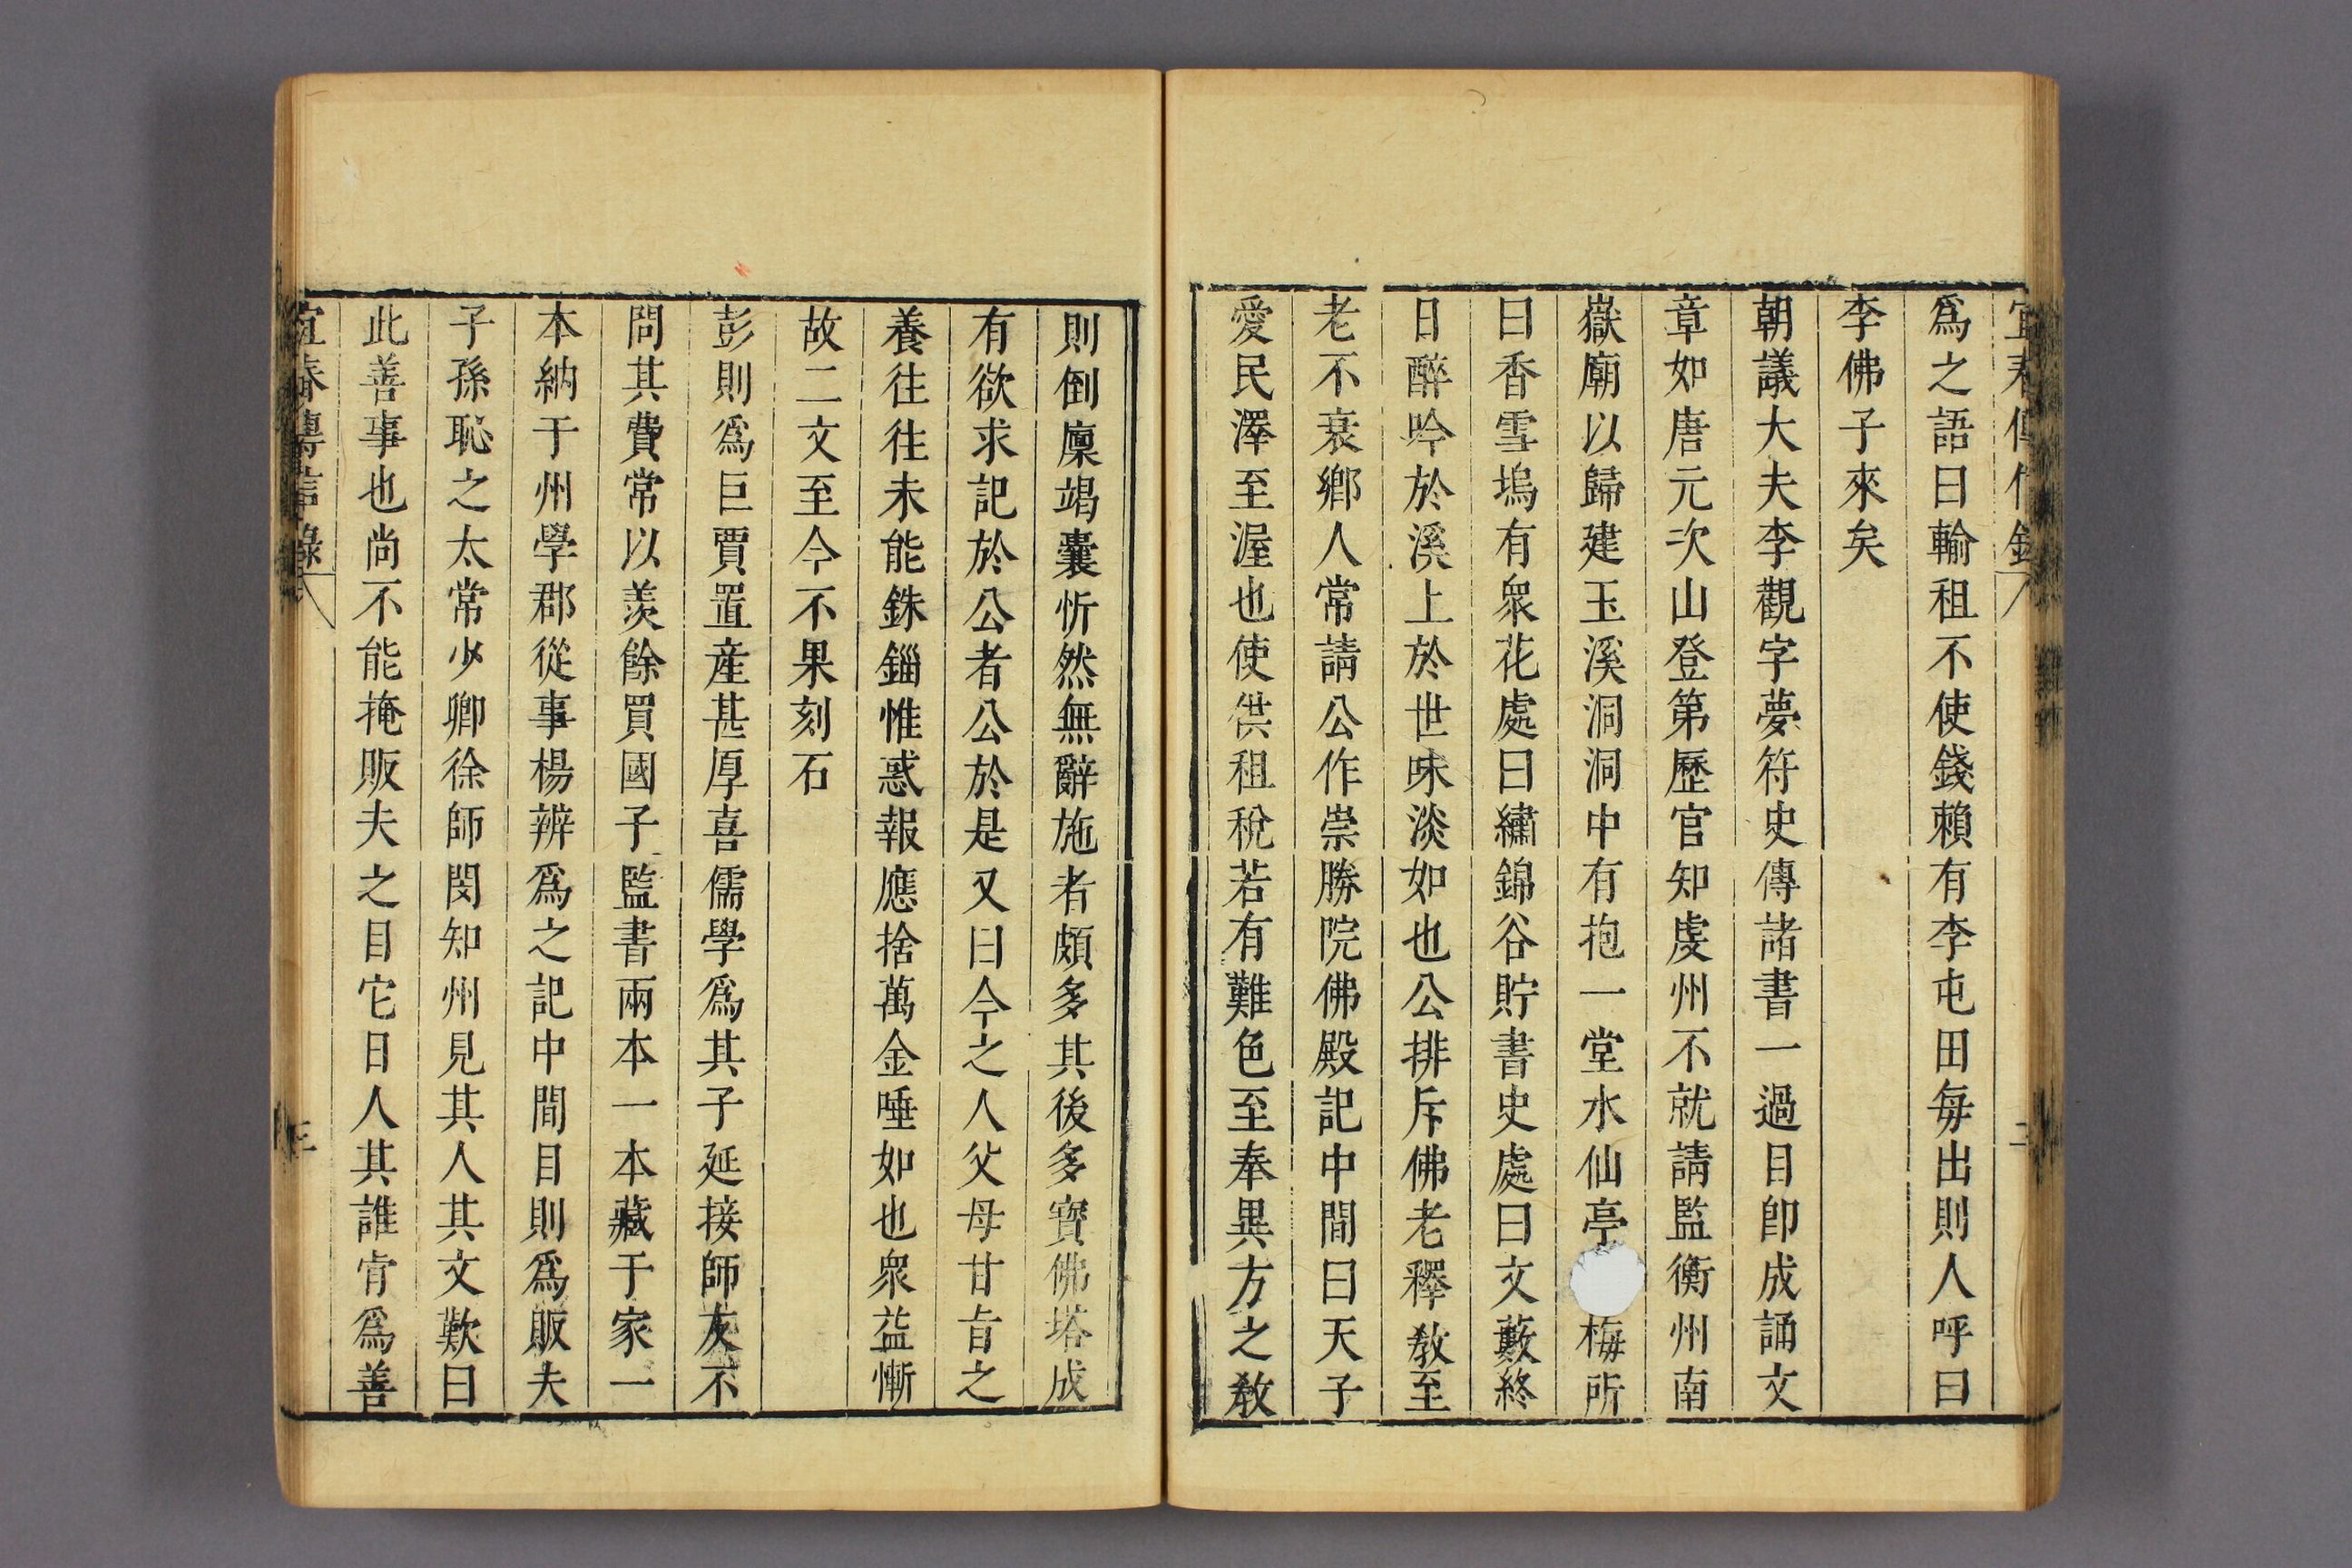 宜春傳信錄
二
爲之語曰輸租不使錢賴有李屯田每出則人呼曰
李佛子來矣
朝議大夫李觀字夢符史傳諸書一過目卽成誦文
章如唐元次山登第歷官知虔州不就請監衡州南
嶽廟以歸建玉溪洞洞中有抱一堂水仙亭梅所
曰香雪塢有衆花處曰繡錦谷貯書史處曰文藪終
日醉吟於溪上於世味淡如也公排斥佛老釋敎至
老不衰鄉人常請公作崇勝院佛殿記中間曰天子
愛民澤至渥也使供租稅若有難色至奉異方之敎
則倒廩竭囊忻然無辭施者頗多其後多寶佛塔成
有欲求記於公者公於是又曰今之人父母甘旨之
養往往未能銖錙惟惑報應捨萬金唾如也衆益慚
故二文至今不果刻石
彭則爲巨賈置產甚厚喜儒學爲其子延接師友不
問其費常以羨餘買國子監書兩本一本藏于家一
本納于州學郡從事楊辨爲之記中間目則爲販夫
子孫恥之太常少卿徐師閔知州見其人其文歎曰
此善事也尚不能掩販夫之目它日人其誰肯爲善
宜春傳信錄
三